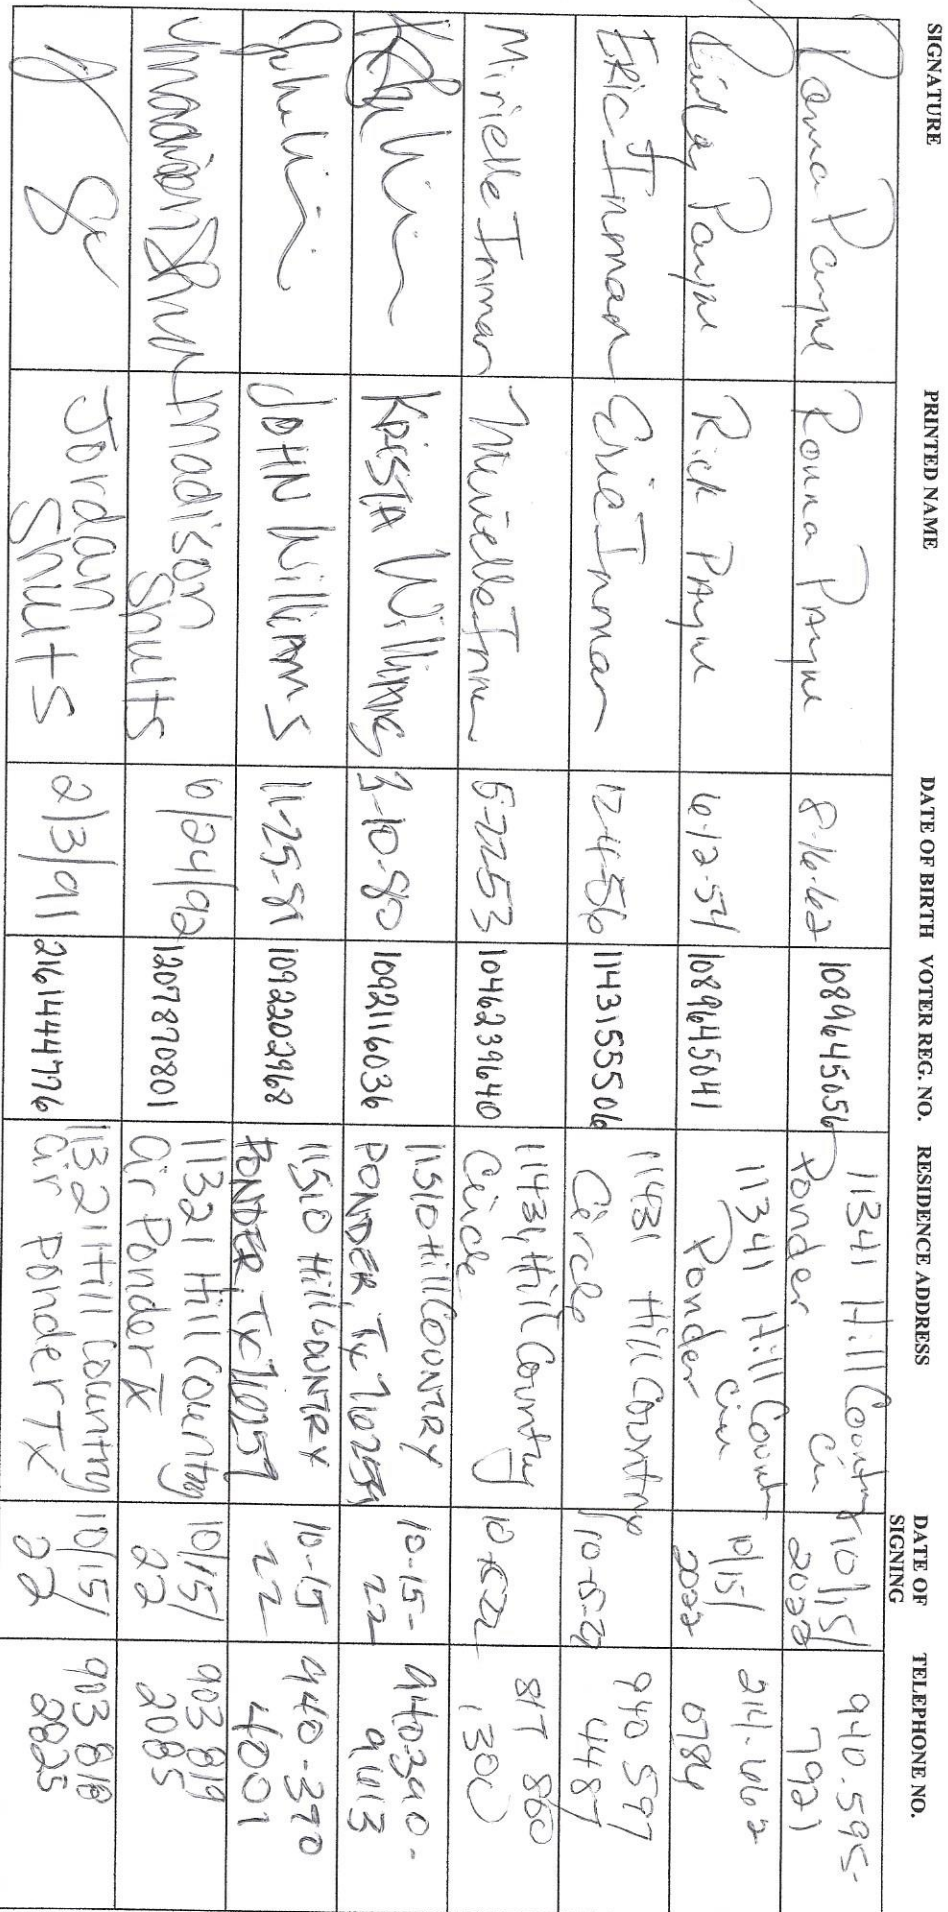 SIGNATURE PRINTED NAME DATE OF BIRTH VOTER REG. NO. RESIDENCE ADDRESS DATE OF SIGNING TELEPHONE NO.
Ronna Payne Ronna Payne 8-16-62 1089645056 11341 Hill Country Cir Ponder 10/15/2022 940.595-7921
Payne Rick Payne 6-12-54 1089645041 11341 Hill Country Cir Ponder 10/15/2022 214-662 0784
Eric Inman Eric Inman 12-4-56 1143155506 11431 Hill Country Circle 940 597 4487
Mirielle Inman Mirielle 5-22-53 1046239640 11431 Hill Country Circle 817 860 1300
KRISTA Williams 3-10-80 1092116036 11510 Hill COUNTRY PONDER, TX 76259 10-15-22 940390-9613
JOHN WilliAMS 11-25-81 1092202968 11510 Hill COUNTRY PONDER, TX 76259 10-15 22 940-390 4001
Madison Shults Madison Shults 6/24/92 1207870801 11321 Hill Country Cir Ponder TX 10/15/22 903 819 2085
Jordan Shults 2/3/91 2161444776 11321 Hill Country Cir Ponder TX 10/15/22 903 818 2825